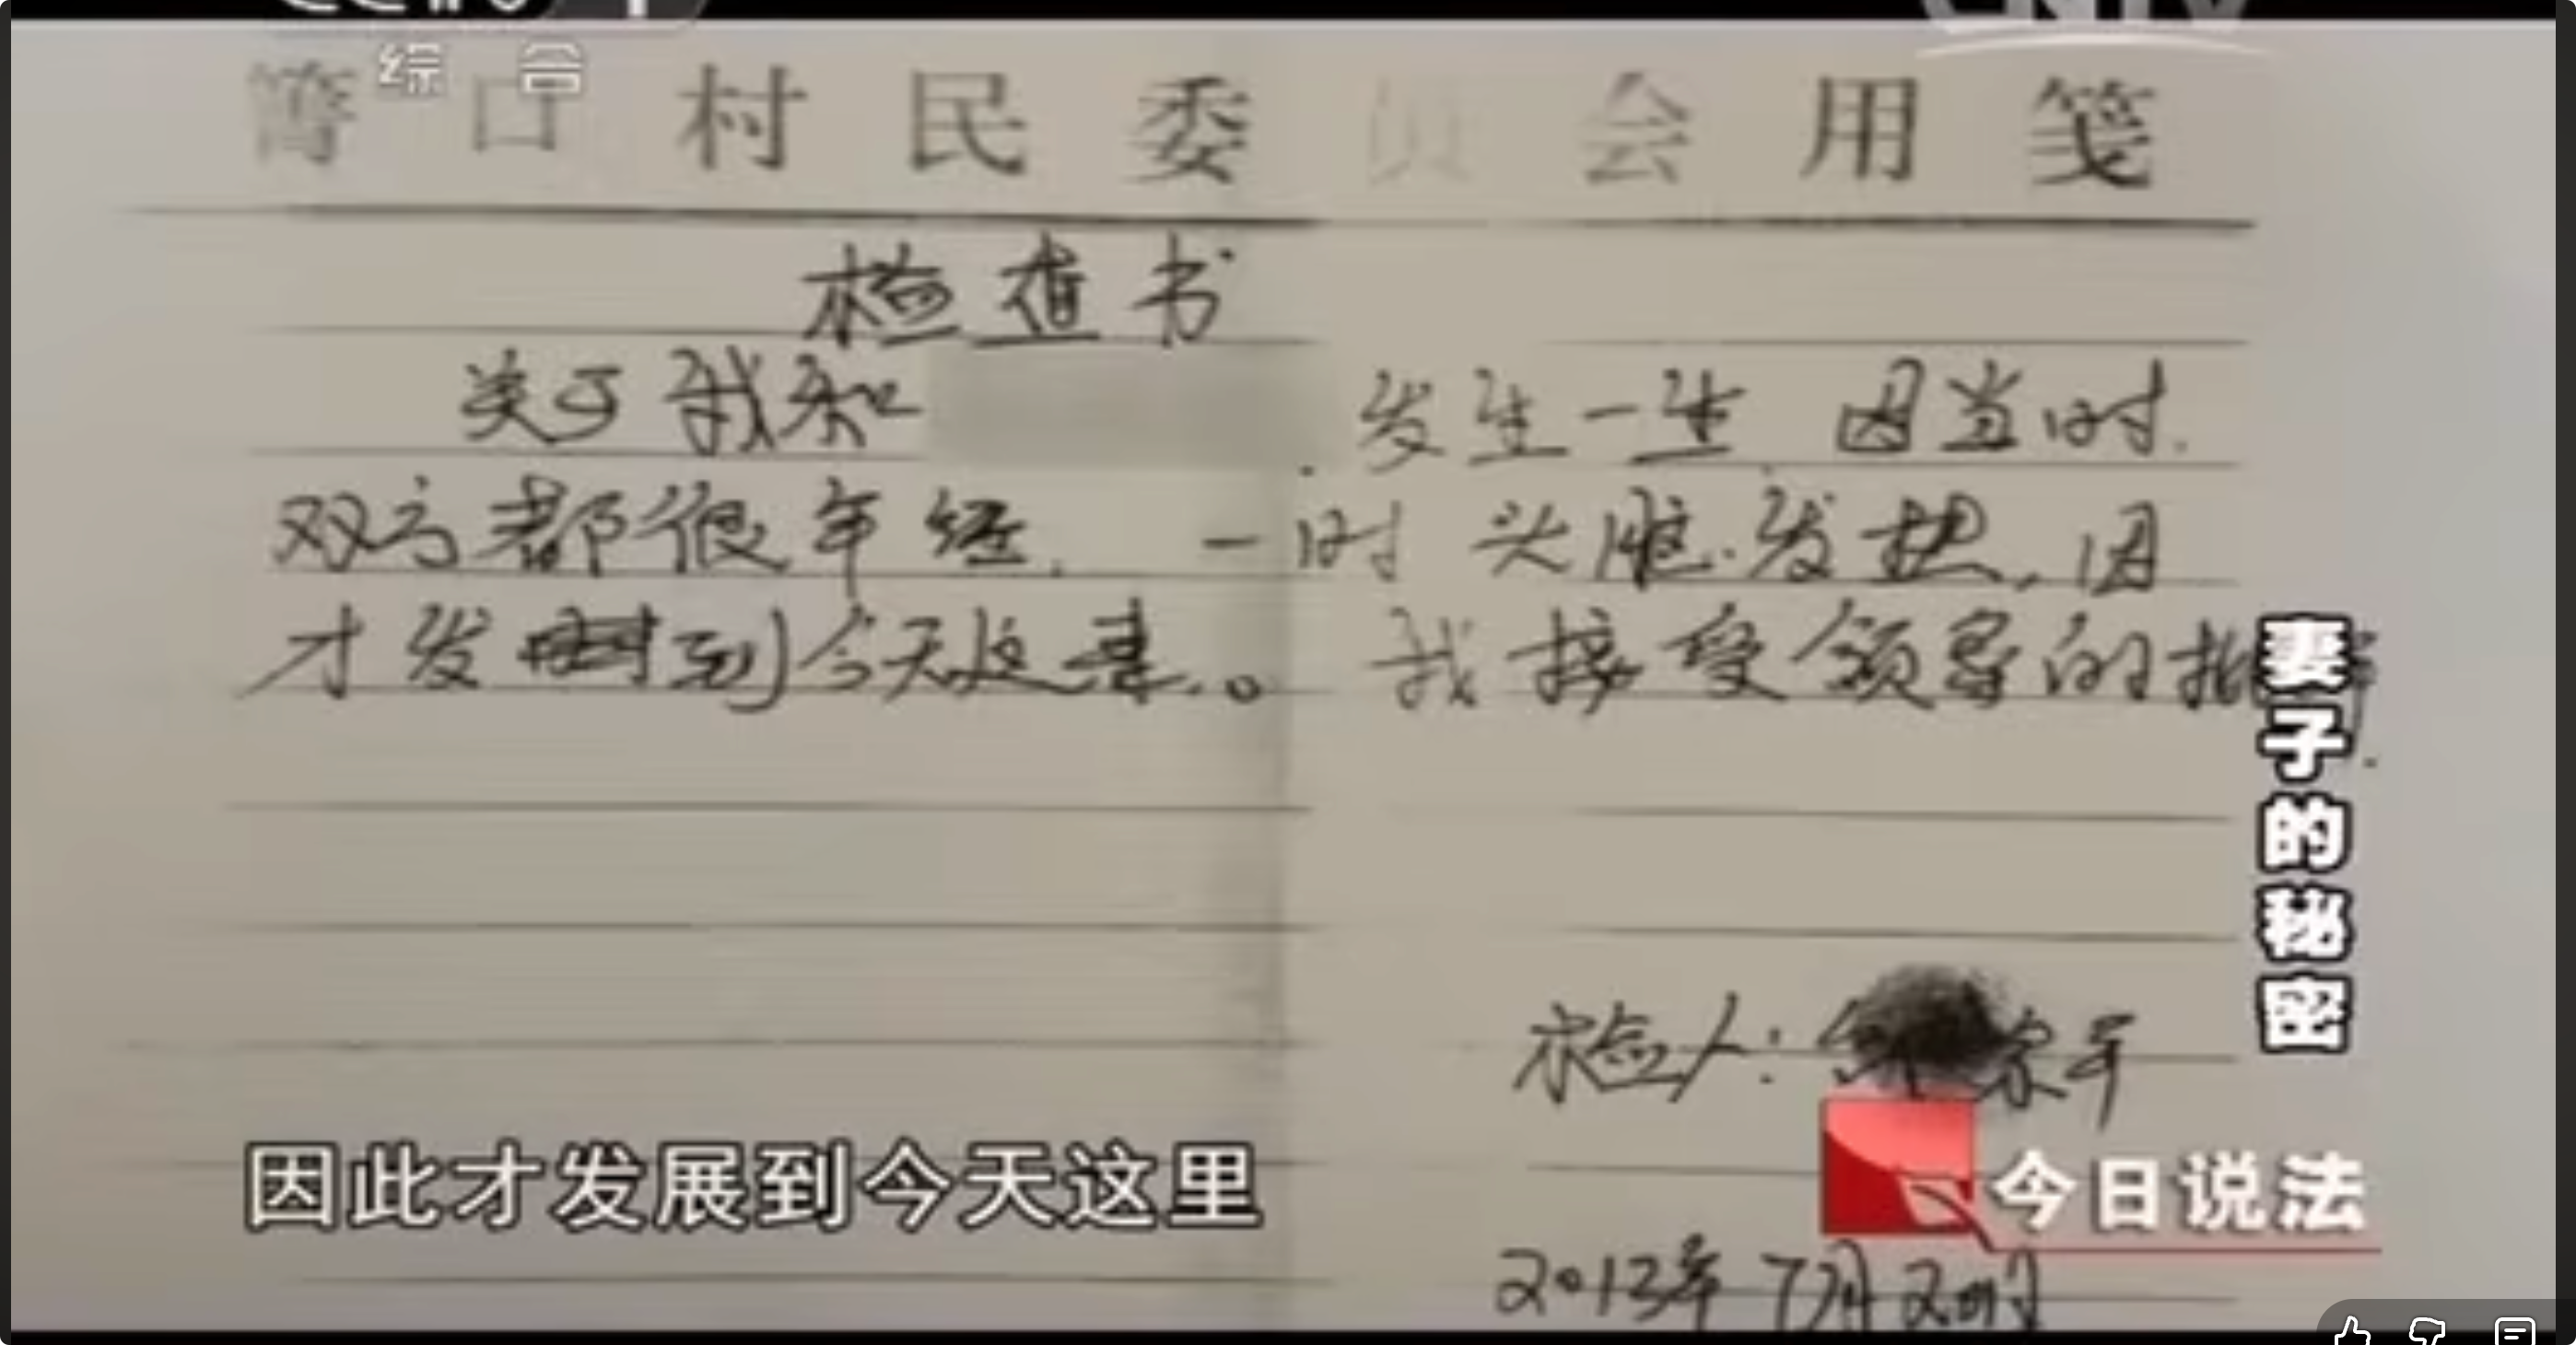 综合
CNTV
村民委员会用笺
检查书
关于我和 发生一 因当时.
双方都很年经. 一时头脑发热,因
才发 到今天这里。 我接受领导的批
检人:
2013年7月2
妻子的秘密
因此才发展到今天这里
今日说法